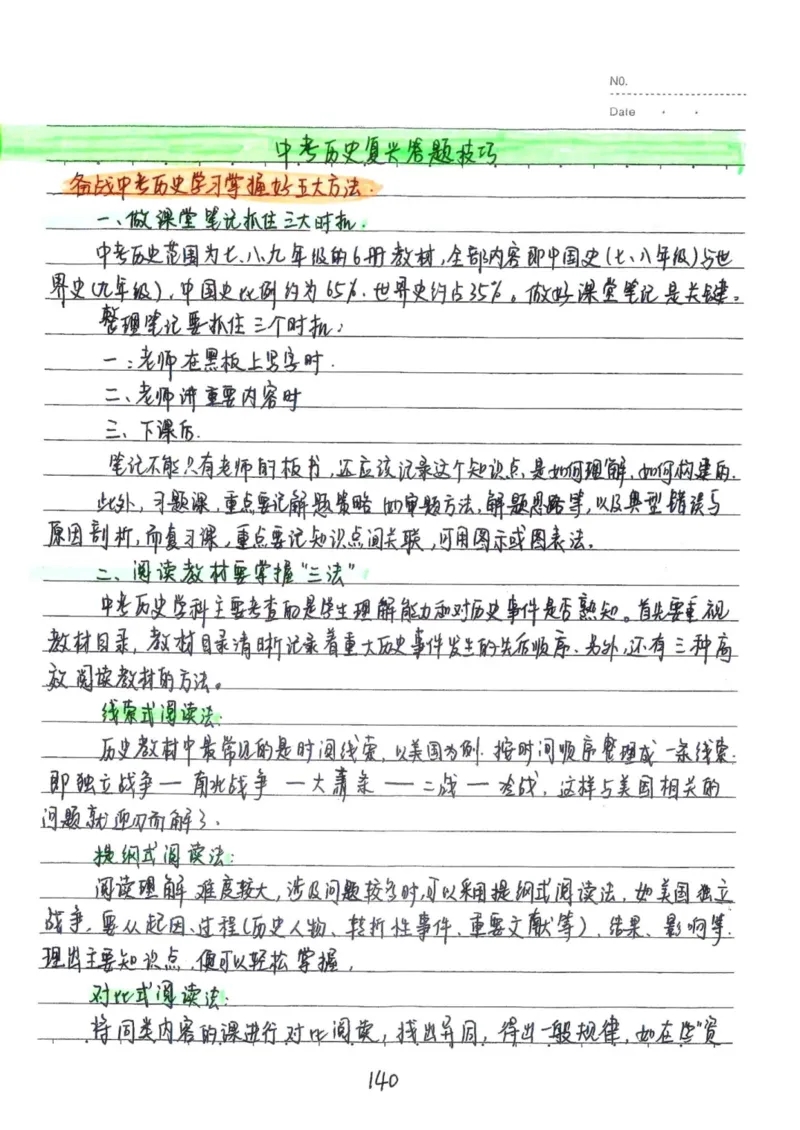 NO.
Date
中考历史复兴答题技巧
备战中考历史学习掌握好五大方法.
一、做课堂笔记抓住三大时机.
中考历史范围为七、八、九年级的6册教材,全部内容即中国史(七、八年级)与世
界史(九年级),中国史比例约为65%.世界史约占35%。做好课堂笔记是关键。
整理笔记要抓住三个时机:
一:老师在黑板上写字时.
二、老师讲重要内容时
三、下课后.
笔记不能只有老师的板书,还应该记录这个知识点,是如何理解,如何构建的.
此外,习题课,重点要记解题策略 如审题方法,解题思路等,以及典型错误与
原因剖析,而复习课,重点要记知识点间关联,可用图示或图表法.
二、阅读教材要掌握“三法”
中考历史学科主要考查的是学生理解能力和对历史事件是否熟知。首先要重视
教材目录,教材目录清晰记录着重大历史事件发生的先后顺序、另外,还有三种高
效阅读教材的方法。
线索式阅读法:
历史教材中最常见的是时间线索,以美国为例.按时间顺序整理成一条线索:
即独立战争—南北战争—大萧条—二战—冷战,这样与美国相关的
问题就迎刃而解了.
提纲式阅读法:
阅读理解难度较大,涉及问题较多时,可以采用提纲式阅读法,如美国独立
战争,要从起因、过程(历史人物、转折性事件、重要文献等)、结果、影响等.
理出主要知识点,便可以轻松掌握,
对比式阅读法:
将同类内容的课进行对比阅读,找出异同,得出一般规律,如在些“资
140